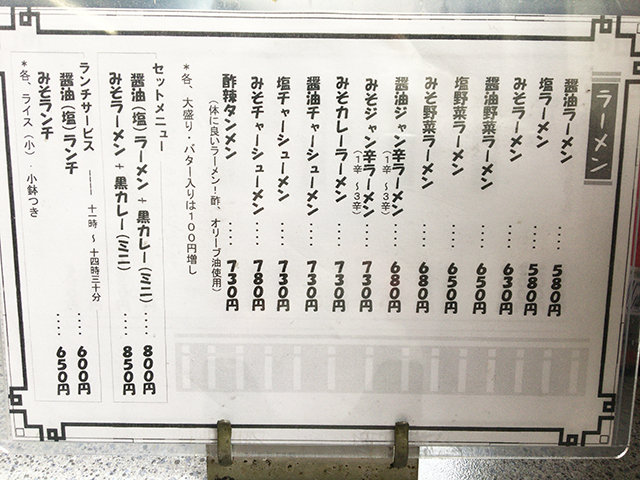 ラーメン
醤油ラーメン‥‥580円
塩ラーメン‥‥580円
みそラーメン‥‥630円
醤油野菜ラーメン‥‥650円
塩野菜ラーメン‥‥650円
みそ野菜ラーメン‥‥680円
醤油ジャン辛ラーメン‥‥680円
(1辛～3辛)
みそジャン辛ラーメン‥‥730円
(1辛～3辛)
みそカレーラーメン‥‥730円
醤油チャーシューメン‥‥730円
塩チャーシューメン‥‥730円
みそチャーシューメン‥‥780円
酢辣タンメン‥‥730円
(体に良いラーメン!酢、オリーブ油使用)
*各、大盛り・バター入りは100円増し
セットメニュー
醤油(塩)ラーメン+黒カレー(ミニ)‥‥800円
みそラーメン+黒カレー(ミニ)‥‥850円
ランチサービス ―― 十一時～十四時三十分
醤油(塩)ランチ‥‥600円
みそランチ‥‥650円
*各、ライス(小) 小鉢つき